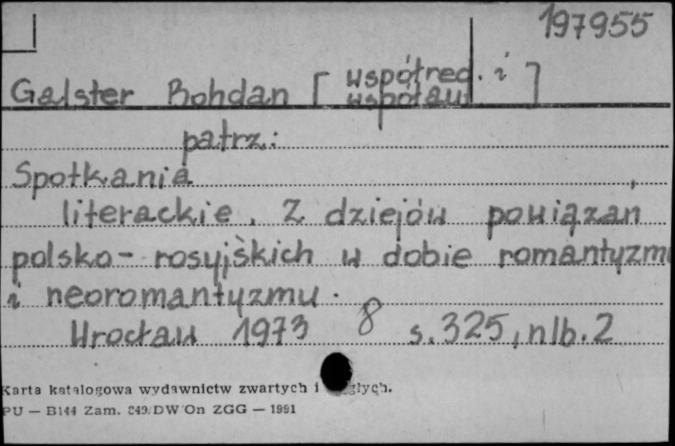 197955
Galster Bohdan [współred. i współaut]
patrz:
Spotkania
literackie. Z dziejów powiązań
polsko-rosyjskich w dobie romantyzm
i neoromantyzmu.
Wrocław 1973 8 s.325, nlb.2
Karta katalogowa wydawnictw zwartych i
PU — B144 Zam. DW On ZGG — 1991